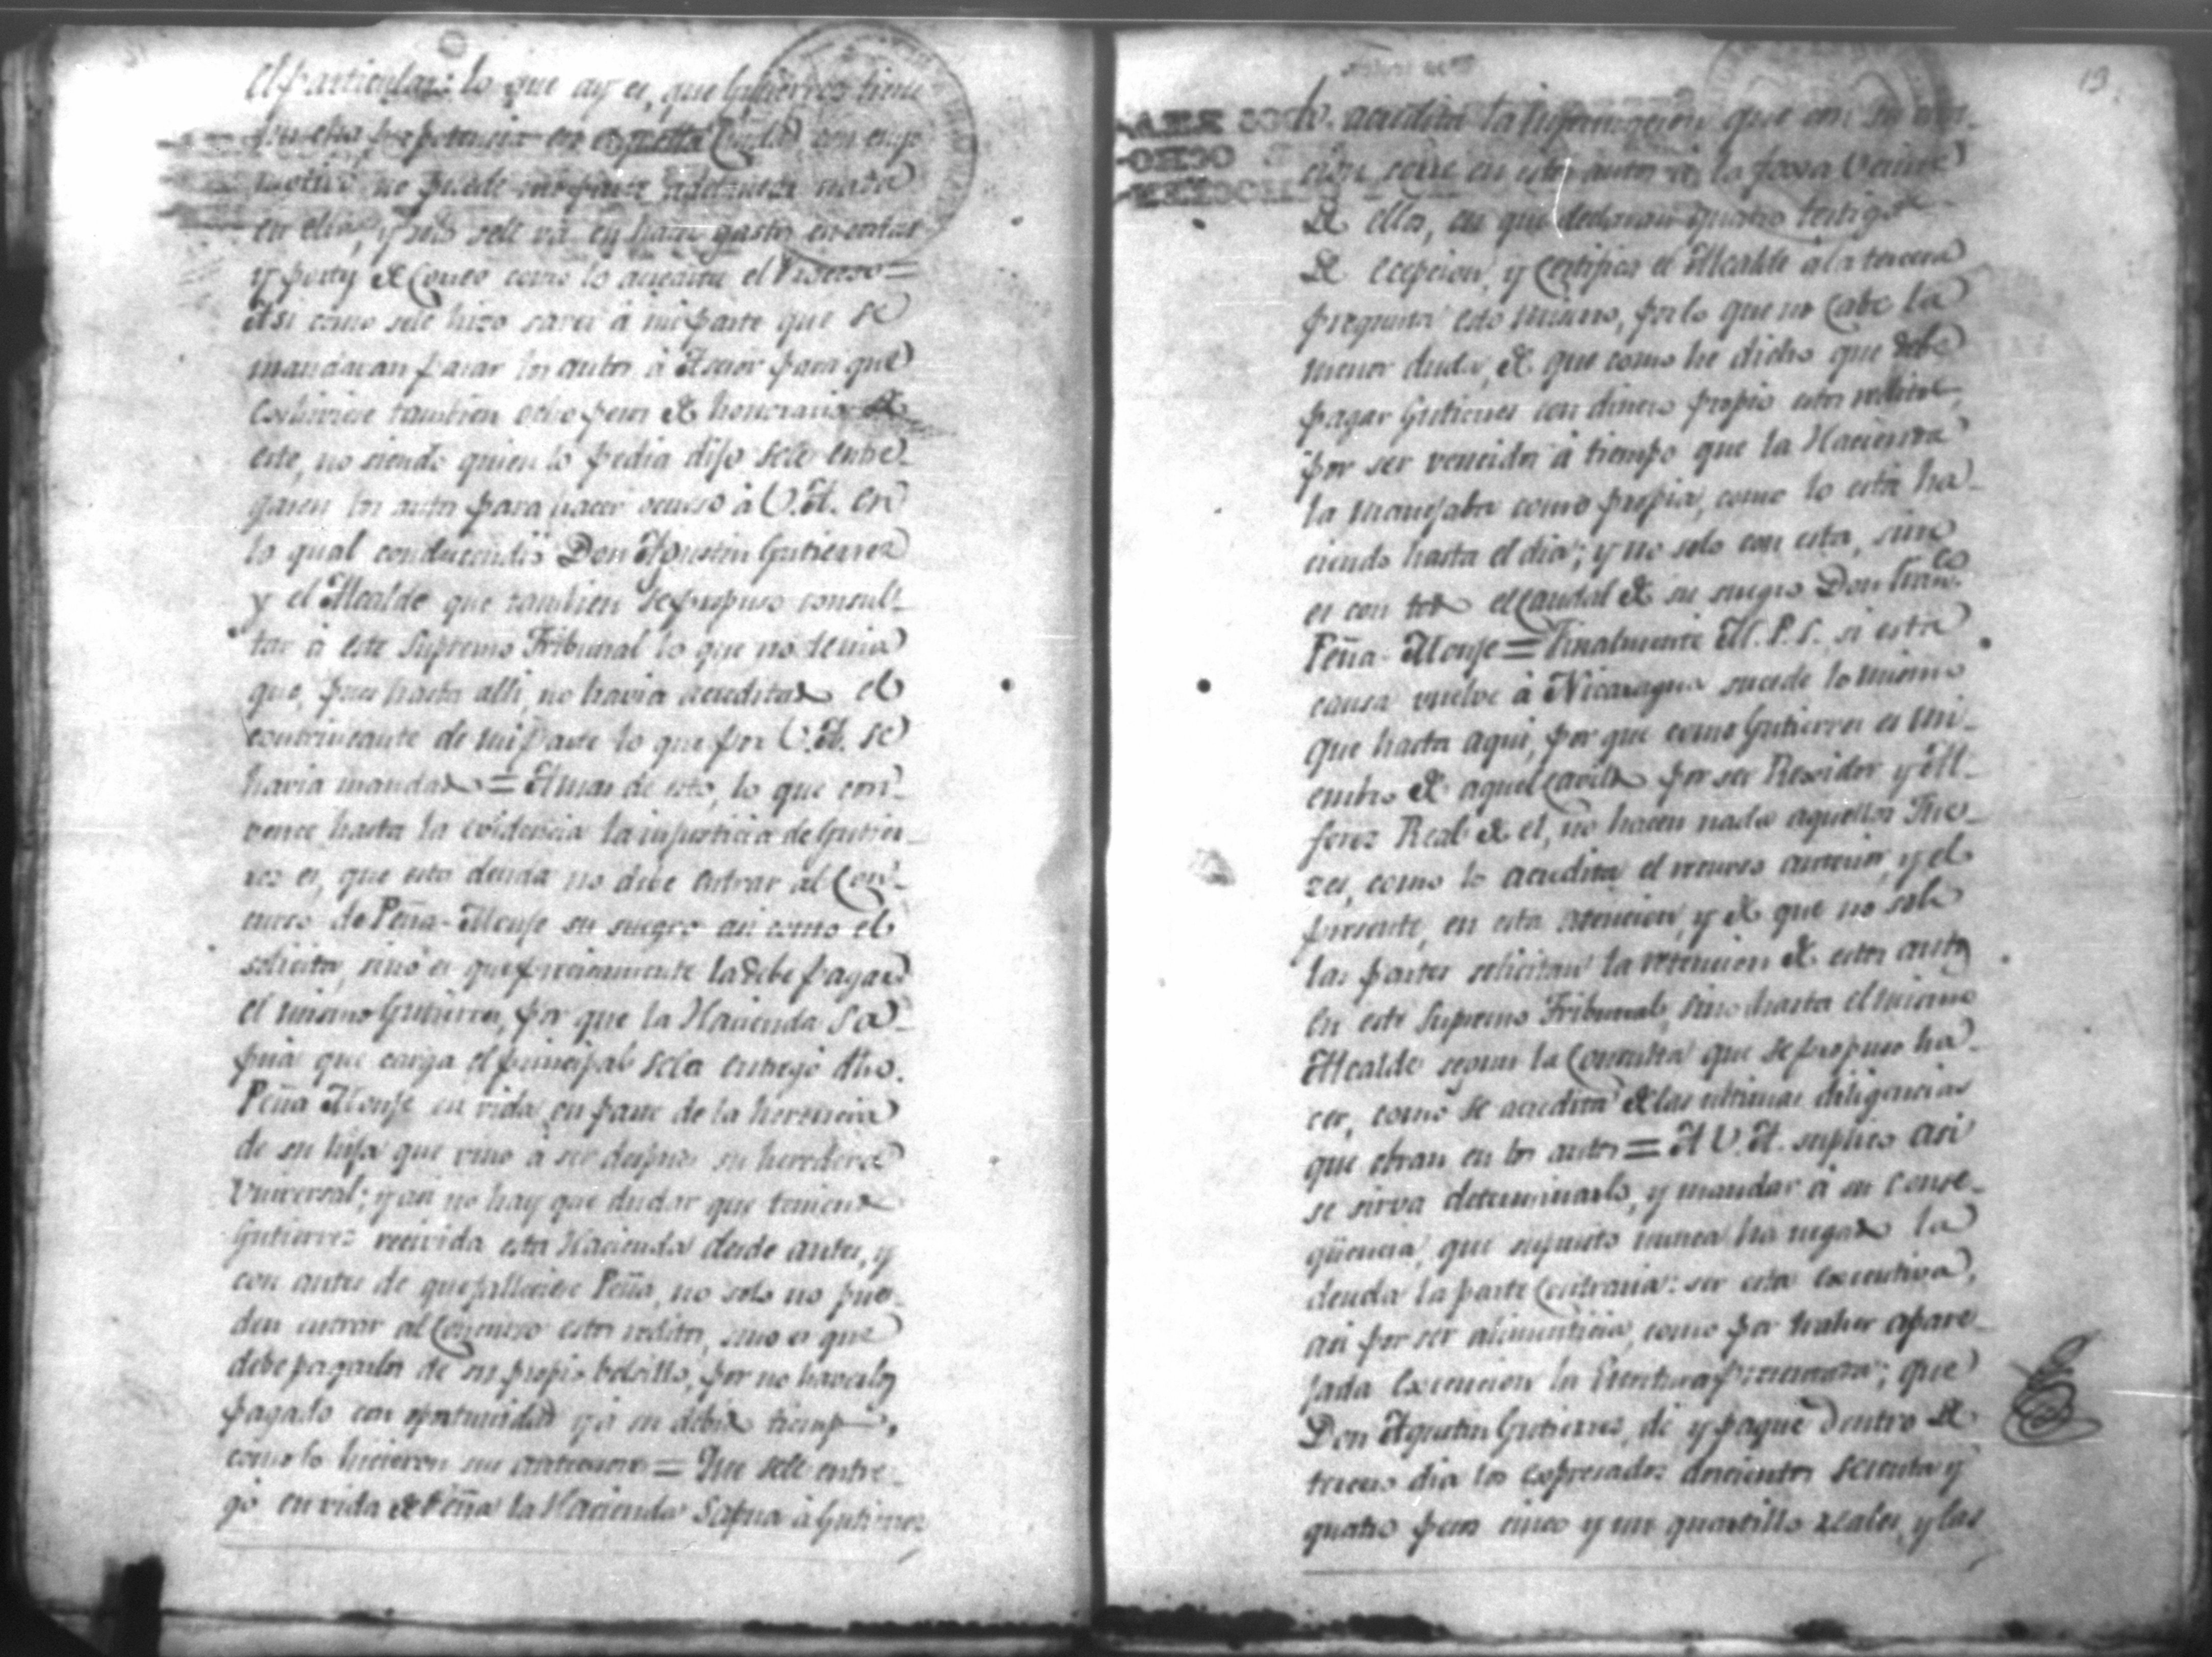 el particular: lo que ay es, que Gutierres tiene
mucha prepotencia en aquella Ciudad con cuyo
motivo no puede mi parte adelantar nada
en ella, y solo sele va en hacer gastos en cartas
y portes de Correo como lo acredita el Proceso =
Asi como sele hizo saver á mi parte que se
mandavan pasar los autos á Asesor para que
exhiviese tambien ocho pesos de honorario de
este, no siendo quien lo pedia dijo sele entre-
gasen los autos para hacer ocurso á V.A. en
lo qual condecendió Don Agustin Gutierrez
y el Alcalde que tambien se propuso consul-
tar á este Supremo Tribunal lo que no devia
que, pues hasta alli, no havia acreditado el
contrincante de mi parte lo que por V.A. se
havia mandado = A mas de esto, lo que con-
vence hasta la evidencia la injusticia de Gutier-
res es, que esta deuda no deve entrar al Con-
curso de Peña-Monje su suegro asi como el
solicita, sino es que precisamente la debe pagar
el mismo Gutierres, por que la Hacienda Sa-
pua que carga el principal sela entregó dho.
Peña Monje en vida en parte de la herencia
de su hija que vino á ser despues su heredera
Universal; y asi no hay que dudar que teniendo
Gutierrez recivida esta Hacienda desde antes, y
con antes de que falleciese Peña, no solo no pue-
den entrar al Concurso estos reditos, sino es que
debe pagarlos de su propio bolsillo, por no haverlos
pagado con oportunidad y á su debido tiempo,
como lo hicieron sus antecesores = Que sele entre-
gó en vida de Peña la Hacienda Sapua á Gutierrez
19.
lo acredita la informacion que con su
cion corre en estos autos á la foxa veinte
de ellos, en que declaran quatro testigos
de ecepcion, y certifica el Alcalde á la tercera
pregunta esto mismo, por lo que no cabe la
menor duda, de que como he dicho que debe
pagar Gutierres con dinero propio estos reditos,
por ser vencidos á tiempo que la Hacienda
la manejaba como propia, como lo está ha-
ciendo hasta el dia; y no solo con esta, sino
es con todo el Caudal de su suegro Don Franco.
Peña-Monje = Finalmente M.P.S. si esta
causa vuelve á Nicaragua sucede lo mismo
que hasta aqui, por que como Gutierres es mi-
embro de aquel Cavildo por ser Rexidor y Al-
ferez Real de el, no hacen nada aquellos Jue-
zes, como lo acredita el recurso anterior, y el
presente, en esta atencion, y de que no solo
las partes solicitan la retencion de estos autos
en este Supremo Tribunal, sino hasta el mismo
Alcalde segun la Consulta que se propuso ha-
cer, como se acredita de las ultimas diligencias
que obran en los autos = A V.A. suplico asi
se sirva determinarlo, y mandar á su conse-
qüencia, que supuesto nunca ha negado la
deuda la parte Contraria: ser esta executiva,
asi por ser alimenticia, como por traher apare-
jada Execucion la Escritura presentada; que
Don Agustin Gutierres, dé y pague dentro de
tercero dia los expresados docientos secenta y
quatro pesos cinco y un quartillo reales, y las